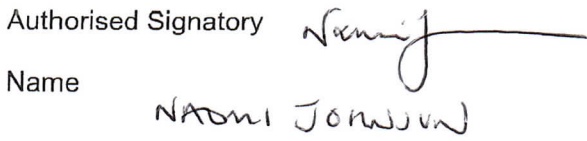 Authorised Signatory Naomi J
Name
NAOMI JOHNSON